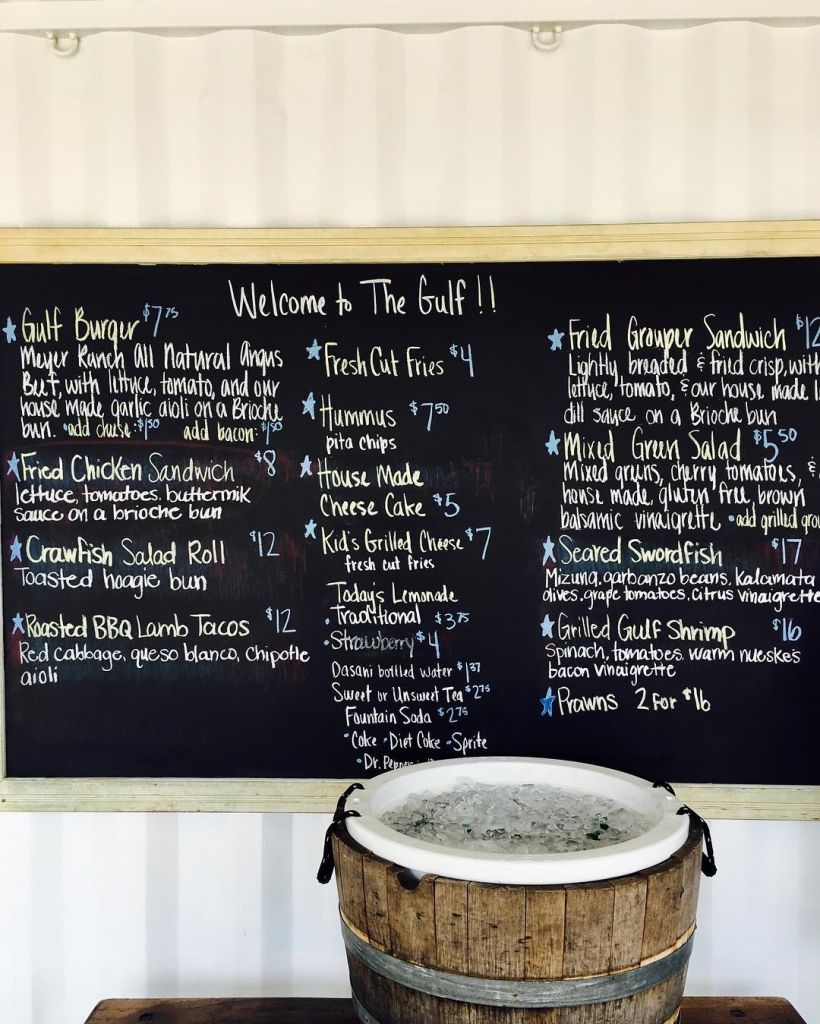 Welcome to The Gulf !!
Gulf Burger $7.75
Meyer Ranch All Natural Angus
Beef, with lettuce, tomato, and our
house made garlic aioli on a Brioche
bun. •add cheese: $1.50 add bacon: $1.50
Fried Chicken Sandwich $8
lettuce, tomatoes, buttermik
sauce on a brioche bun
Crawfish Salad Roll $12
Toasted hoagie bun
Roasted BBQ Lamb Tacos $12
Red cabbage, queso blanco, Chipotle
aioli
Fresh Cut Fries $4
Hummus $7.50
pita chips
House Made
Cheese Cake $5
Kid's Grilled Cheese $7
fresh cut fries
Today's Lemonade
•Traditional $3.75
•Strawberry $4
Dasani bottled water $1.37
Sweet or Unsweet Tea $2.75
Fountain Soda $2.75
•Coke •Diet Coke •Sprite
•Dr.
Fried Grouper Sandwich $12
Lightly breaded & fried crisp, with
lettuce, tomato, & our house made
dill sauce on a Brioche bun
Mixed Green Salad $5.50
Mixed greens, cherry tomatoes, &
house made, gluten free, brown
balsamic vinaigrette •add grilled
Seared Swordfish $17
Mizuna, garbanzo beans, Kalamata
olives, grape tomatoes, citrus vinaigrette
Grilled Gulf Shrimp $16
Spinach, tomatoes, warm nueske's
bacon vinaigrette
Prawns 2 for $16